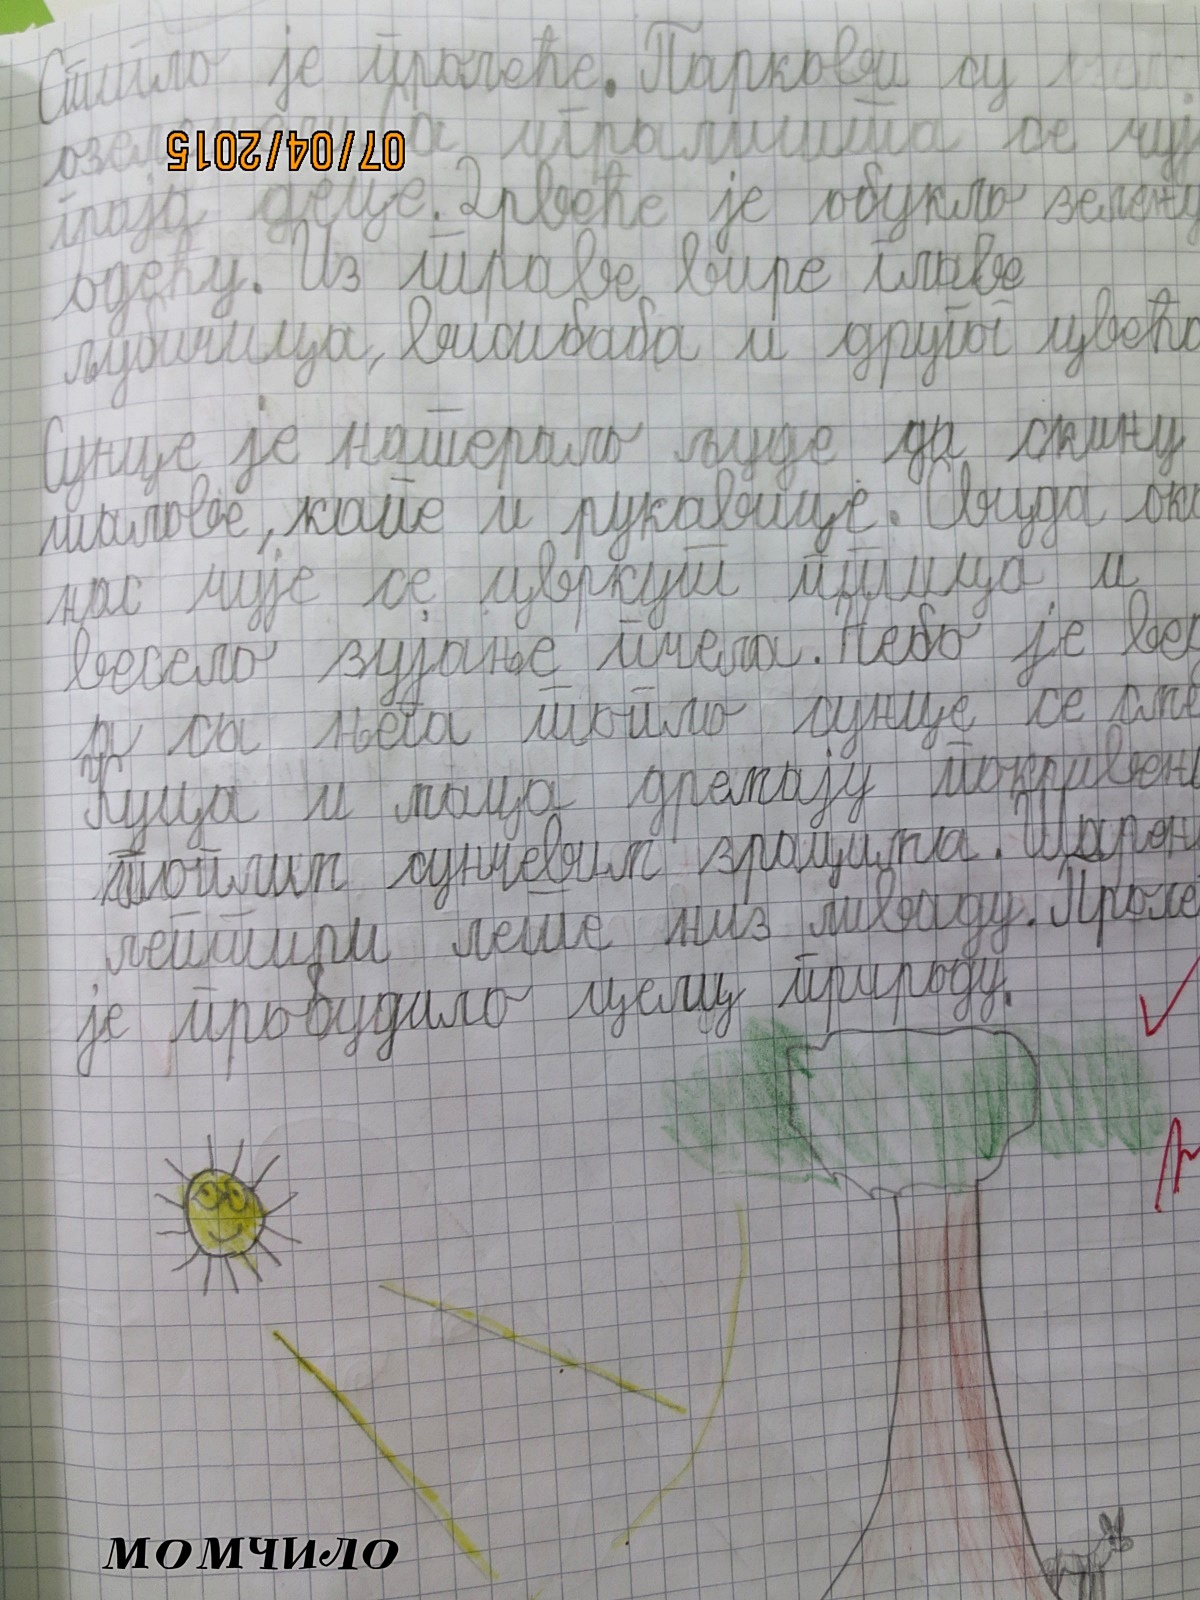 Стигло је пролеће. Паркови су
07/04/2015
игралишта се чује
граја деце. Дрвеће је обукло зелену
одећу. Из траве вире главе
љубичица, висибаба и другог цвећа
Сунце је натерало људе да скину
шалове, капе и рукавице. Свуда око
нас чује се цвркут птица и
весело зујање пчела. Небо је
са њега топло сунце се
Куца и маца дремају покривени
топлим сунчевим зрацима. Шарени
лептири лете низ ливаду. Пролеће
је пробудило целу природу.
МОМЧИЛО